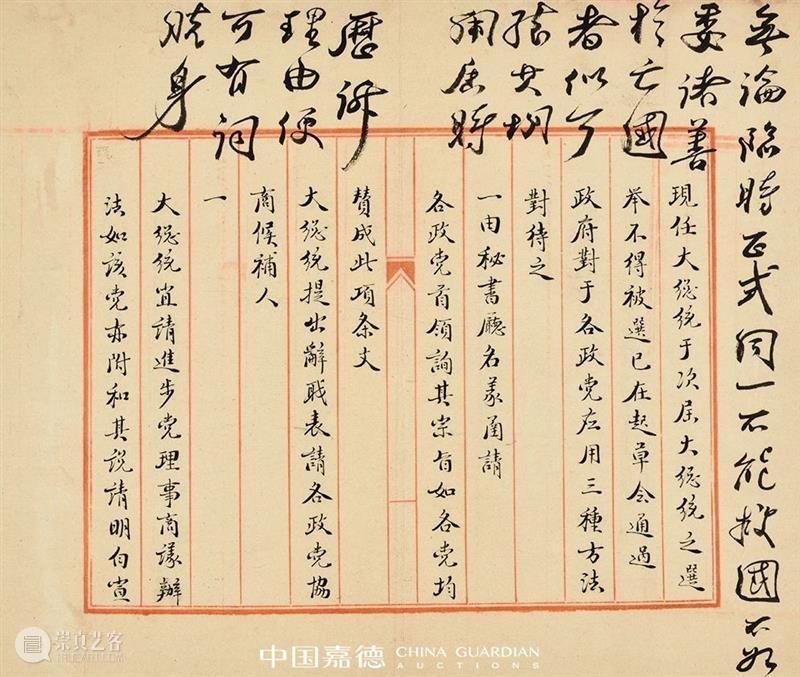 無論臨時正式同一不能救國不如
委諸善
於亡國
者似可
其
屆時
歷訴
理由便
可有詞
脫身
現任大總統于次屆大總統之選
舉不得被選已在起草会通過
政府對于各政党应用三種方法
對待之
一由秘書廳名義函請
各政党首領詢其宗旨如各党均
贊成此項条文
大總統提出辭職表請各政党協
商候補人
一
大總統宜請進步党理事商議辦
法如該党亦附和其說請明白宣
崇真艺客
中国嘉德 CHINA GUARDIAN
AUCTIONS